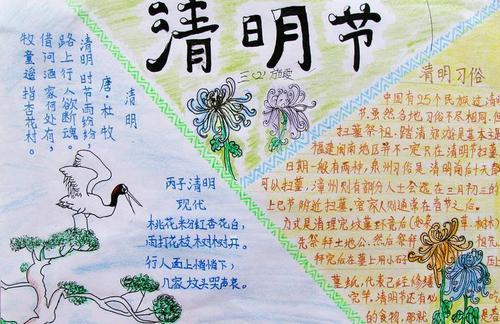 清明节
三(2)
清明
唐·杜牧
清明时节雨纷纷,
路上行人欲断魂。
借问酒家何处有,
牧童遥指杏花村。
丙子清明
现代
桃花粉红杏花白,
雨打花枝树树开。
行人面上悄悄下,
几家坟头哭声哀。
清明习俗
中国有25个民族过清
节,虽然各地习俗不尽相同,但
扫墓祭祖、踏清郊游是基本主
福建闽南地区并不一定只在清明节扫墓
日期一般有两种,泉州习俗是清明前后十天都
可以扫墓,漳州则有部份人士会选在三月初三的
上巳节附近扫墓,官家人则通常在春节之后。
方式是清理完坟墓环境后
先祭拜土地公,然后祭拜
拜完后在墓上用小石
墓纸,代表已经修缮
完毕,清明节还有
的食物,那就